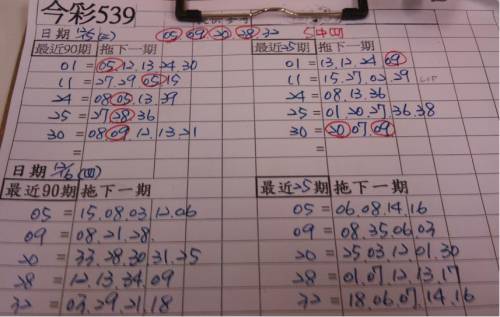 今彩539
日期 (二) 05 09 20 28 32 5中四
最近90期 拖下一期 最近25期 拖下一期
01 = 05.12.13.24.30 01 = 13.12.24.09
11 = 27.29.05.15 11 = 15.27.03.29
24 = 08.05.13.39 24 = 08.13.36
25 = 27.28.36 25 = 01.20.27.36.38
30 = 08.09.12.13.21 30 = 20.07.09
= =
日期 (四)
最近90期 拖下一期 最近25期 拖下一期
05 = 15.08.03.12.06 05 = 06.08.14.16
09 = 08.21.28. 09 = 08.35.06.03
20 = 33.28.30.31.25 20 = 25.03.12.01.30
28 = 12.13.34.09 28 = 01.07.12.13.17
32 = 03.29.21.18 32 = 18.06.07.14.16